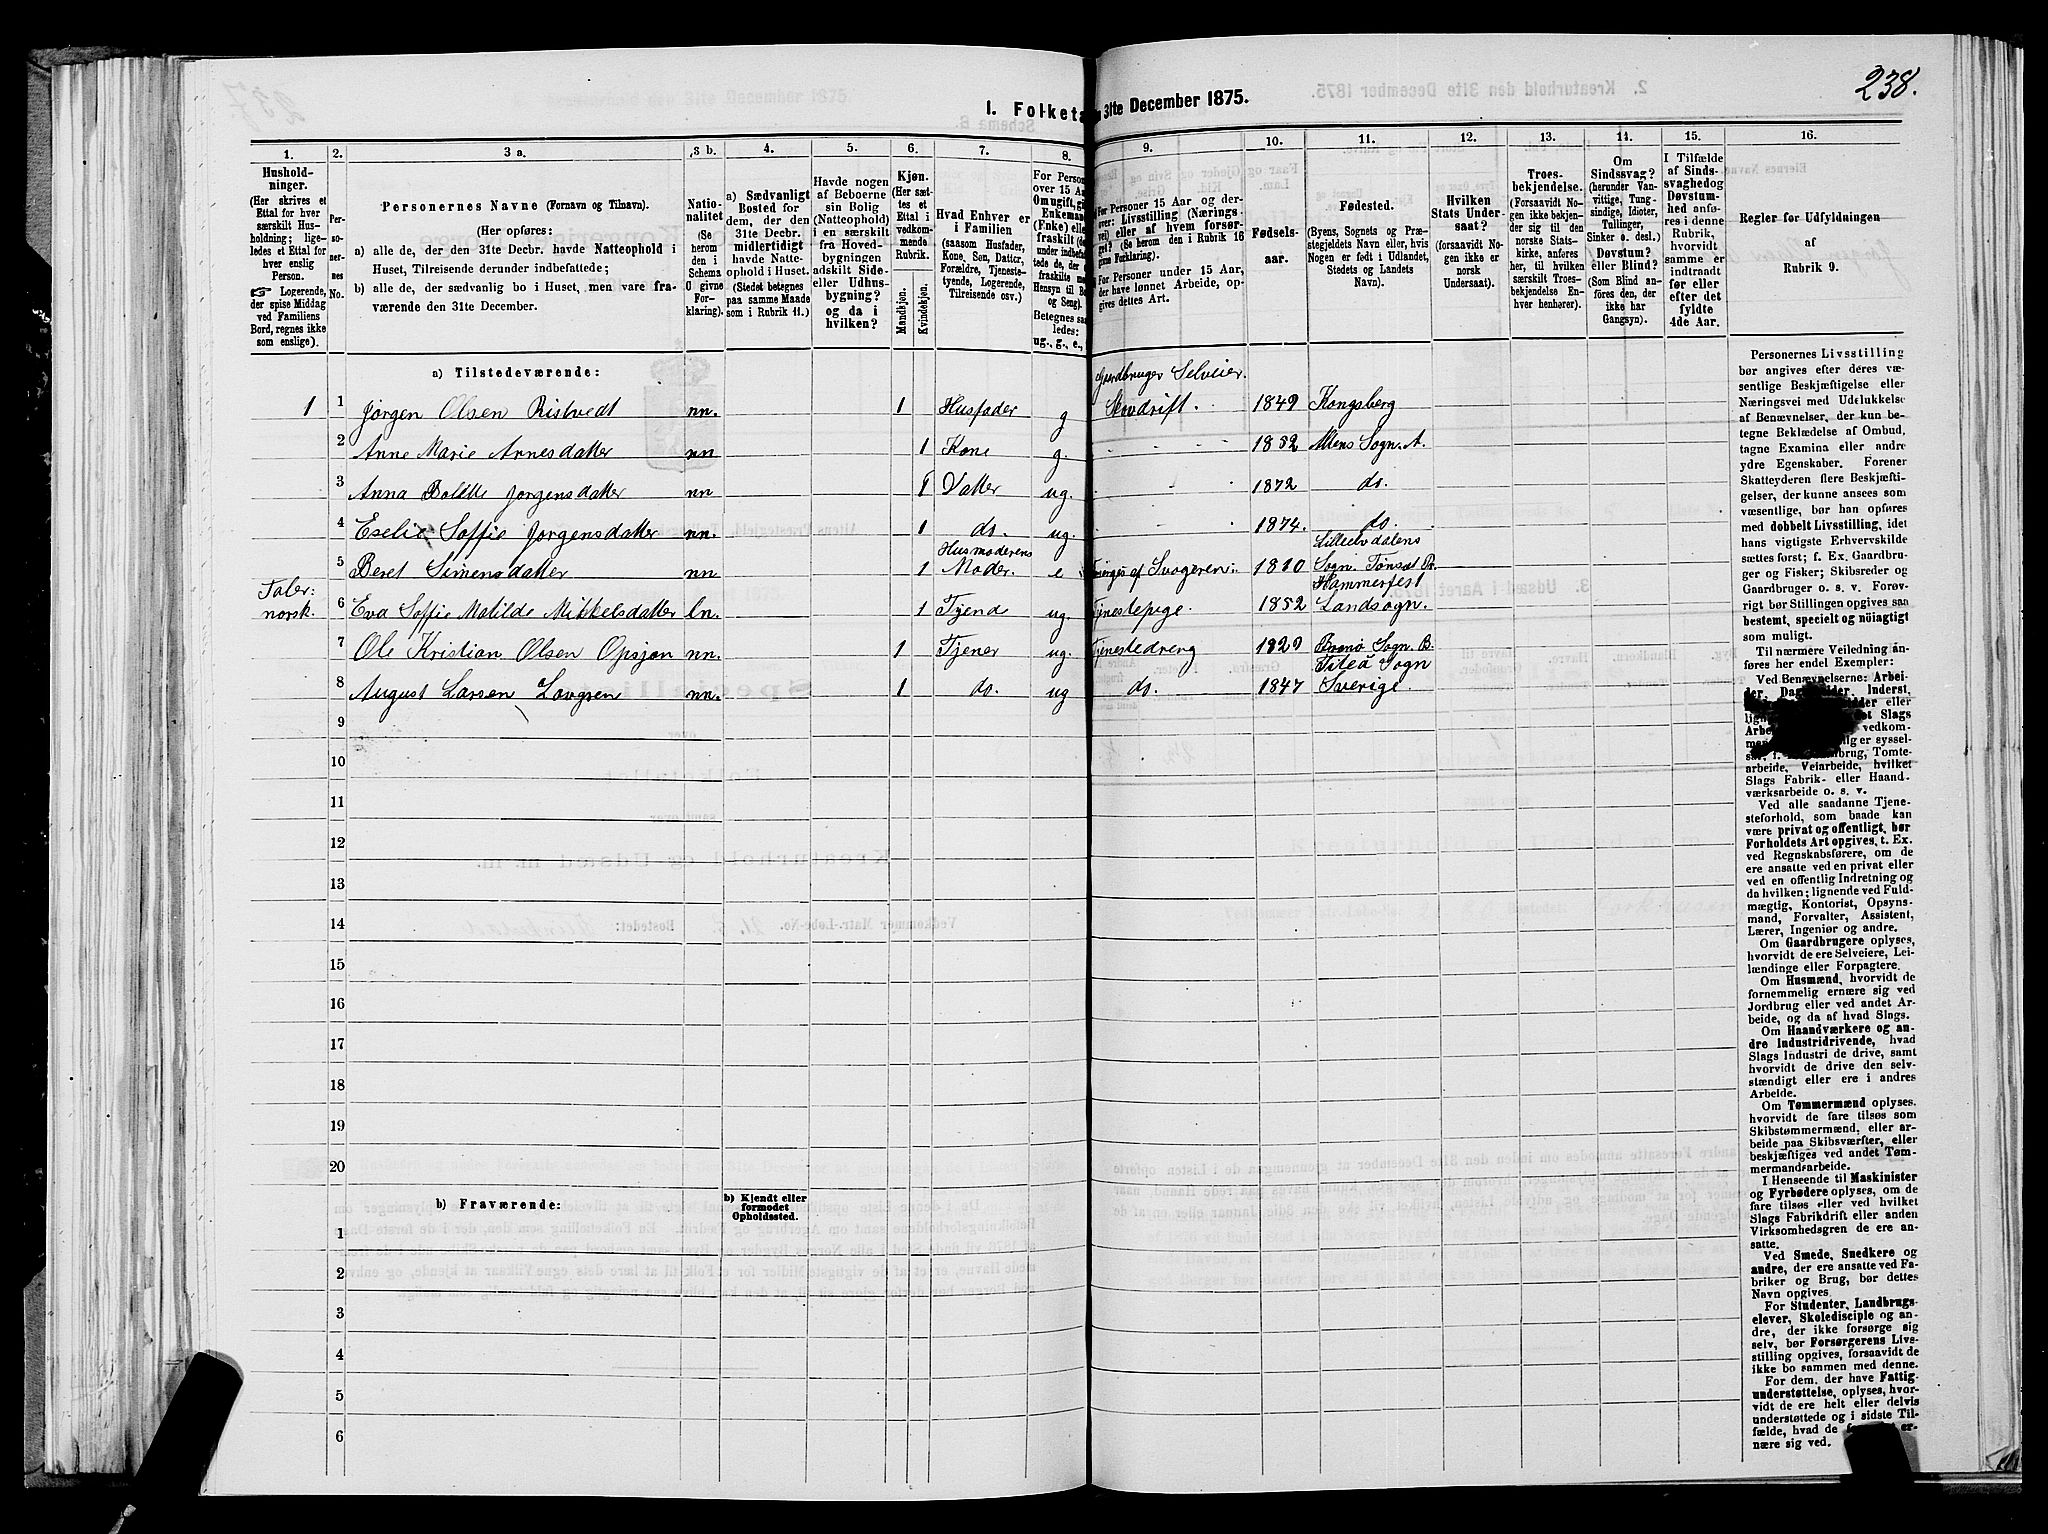 238.
I. Folketa
31te December 1875.
1.
2.
3 a.
3 b.
4.
5.
6.
7.
8.
9.
10.
11.
12.
13.
14.
15.
16.
Hushold-
ninger.
(Her skrives et
Ettal for hver
særskilt Hus-
holdning; lige-
ledes et Ettal for
hver enslig
Person.
☞ Logerende,
der spise Middag
ved Familiens
Bord, regnes ikke
som enslige).
Per-
so-
ner-
nes
No.
Personernes Navne (Fornavn og Tilnavn).
(Her opføres:
a) alle de, der den 31te Decbr. havde Natteophold i
Huset, Tilreisende derunder indbefattede;
b) alle de, der sædvanlig bo i Huset, men vare fra-
værende den 31te December.
Natio-
nalitet
(Se
herom
den i
Schema
O givne
For-
klaring).
a) Sædvanligt
Bosted for
dem, der den
31te Decbr.
midlertidigt
havde Natte-
ophold i Huset.
(Stedet betegnes
paa samme Maade
som i Rubrik 11.)
Havde nogen
af Beboerne
sin Bolig
(Natteophold)
i en særskilt
fra Hoved-
bygningen
adskilt Side-
eller Udhus-
bygning?
og da i
hvilken?
Kjøn.
(Her sæt-
tes et
Ettal i
vedkom-
mende
Rubrik.
Mandkjøn.
Kvindekjøn.
Hvad Enhver er
i Familien
(saasom Husfader,
Kone, Søn, Datter,
Forældre, Tjeneste-
tyende, Logerende,
Tilreisende osv.)
For Person
over 15 Aa
Om ugift, gi
Enkemand
(Enke) elle
fraskilt (de
under indbefa
fraskilte m
Hensyn til B
og Seng).
Betegnes saa
ledes:
ug., g., e.,
For Personer 15 Aar og der-
over: Livsstilling (Nærings-
vei) eller af hvem forsør-
get? (Se herom den i Rubrik 16
givne Forklaring).
For Personer under 15 Aar,
der have lønnet Arbeide, op-
gives dettes Art.
Fødsels-
aar.
Fødested.
(Byens, Sognets og Præ-
stegjeldets Navn eller, hvis
Nogen er født i Udlandet,
Stedets og Landets
Navn).
Hvilken
Stats Under-
saat?
(forsaavidt No-
gen ikke er
norsk
Undersaat).
Troes-
bekjendelse.
(Forsaavidt No-
gen ikke bekjen-
der sig til den
norske Stats-
kirke, anføres
her, til hvilken
særskilt Troes-
bekjendelse En-
hver henhører).
Om
Sindssvag?
(herunder Van-
vittige, Tung-
sindige, Idioter,
Tullinger,
Sinker o. desl.)
Døvstum?
eller Blind?
(Som Blind an-
føres den, der
ikke har
Gangsyn).
I Tilfælde
af Sinds-
svaghed og
Døvstum-
hed anfø-
res i denne
Rubrik,
hvorvidt
samme er
indtraadt
før eller
efter det
fyldte
4de Aar.
Regler for Udfyldningen
af
Rubrik 9.
a) Tilstedeværende:
Gaardbruger Selveier.
1 1 Jørgen Olsen Ristvedt nn. 1 Husfader g Skovdrift. 1849 Kongsberg
2 Anne Marie Arnesdatter nn 1 Kone g. 1852 Altens Sogn. A.
3 Anna Boldtte Jørgensdatter nn 1 Datter ug. 1872 do.
4 Eselie Soffie Jørgensdatter nn. 1 do. ug. 1874. do.
Husmoderens Lilleelvdalens
5 Beret Simensdatter nn 1 Moder. e Forsørges af Svogeren: 1810 Sogn. Tønset Pr.
Taler: Hammerfest
norsk. 6 Eva Soffie Matilde Mikkelsdatter ln. 1 Tjende ug. Tjenestepige. 1852 Landsogn.
7 Ole Kristian Olsen Opsjøn nn. 1 Tjener ug. Tjenestedreng 1820 Brønø Sogn B.
Sogn
8 August Larsen Lovgren nn. 1 do. ug do. 1847 Sverige.
9
10
11
12
13
14
15
16
17
18
19
20
b) Fraværende:
b) Kjendt eller
formodet
Opholdssted.
1
2
3
4
5
6
Personernes Livsstilling
bør angives efter deres væ-
sentlige Beskjæftigelse eller
Næringsvei med Udelukkelse
af Benævnelser, der kun be-
tegne Beklædelse af Ombud,
tagne Examina eller andre
ydre Egenskaber. Forener
Skatteyderen flere Beskjæfti-
gelser, der kunne ansees som
væsentlige, bør han opføres
med dobbelt Livsstilling, idet
hans vigtigste Erhvervskilde
sættes først; f. Ex. Gaardbru-
ger og Fisker; Skibsreder og
Gaardbruger o. s. v. Forøv-
rigt bør Stillingen opgives saa
bestemt, specielt og nøiagtigt
som muligt.
Til nærmere Veiledning an-
føres her endel Exempler:
Ved Benævnelserne: Arbei-
der, Inderst,
eller
Slags
vedkom-
er syssel-
Tomte-
arbeide, Veiarbeide, hvilket
Slags Fabrik- eller Haand-
værksarbeide o. s. v.
Ved alle saadanne Tjene-
steforhold, som baade kan
være privat og offentligt, bør
Forholdets Art opgives, t. Ex.
ved Regnskabsførere, om de
ere ansatte ved en privat eller
ved en offentlig Indretning og
da hvilken; lignende ved Fuld-
mægtig, Kontorist, Opsyns-
mand, Forvalter, Assistent,
Lærer, Ingeniør og andre.
Om Gaardbrugere oplyses,
hvorvidt de ere Selveiere, Lei-
lændinge eller Forpagtere.
Om Husmænd, hvorvidt de
fornemmelig ernære sig ved
Jordbrug eller ved andet Ar-
beide, og da af hvad Slags.
Om Haandværkere og an-
dre Industridrivende, hvad
Slags Industri de drive, samt
hvorvidt de drive den selv-
stændigt eller ere i andres
Arbeide.
Om Tømmermænd oplyses,
hvorvidt de fare tilsøs som
Skibstømmermænd, eller ar-
beide paa Skibsværfter, eller
beskjæftiges ved andet Tøm-
mermandsarbeide.
I Henseende til Maskinister
og Fyrbødere oplyses, om de
fare tilsøs eller ved hvilket
Slags Fabrikdrift eller anden
Virksomhedsgren de ere an-
satte.
Ved Smede, Snedkere og
andre, der ere ansatte ved Fa-
briker og Brug, bør dettes
Navn opgives.
For Studenter, Landbrugs-
elever, Skoledisciple og an-
dre, der ikke forsørge sig
selv, bør Forsørgerens Livs-
stilling opgives, forsaavidt de
ikke bo sammen med denne.
For dem, der have Fattig-
understøttelse, oplyses, hvor-
vidt de ere helt eller delvis
understøttede og i sidste Til-
fælde, hvad de er-
nære sig ved.